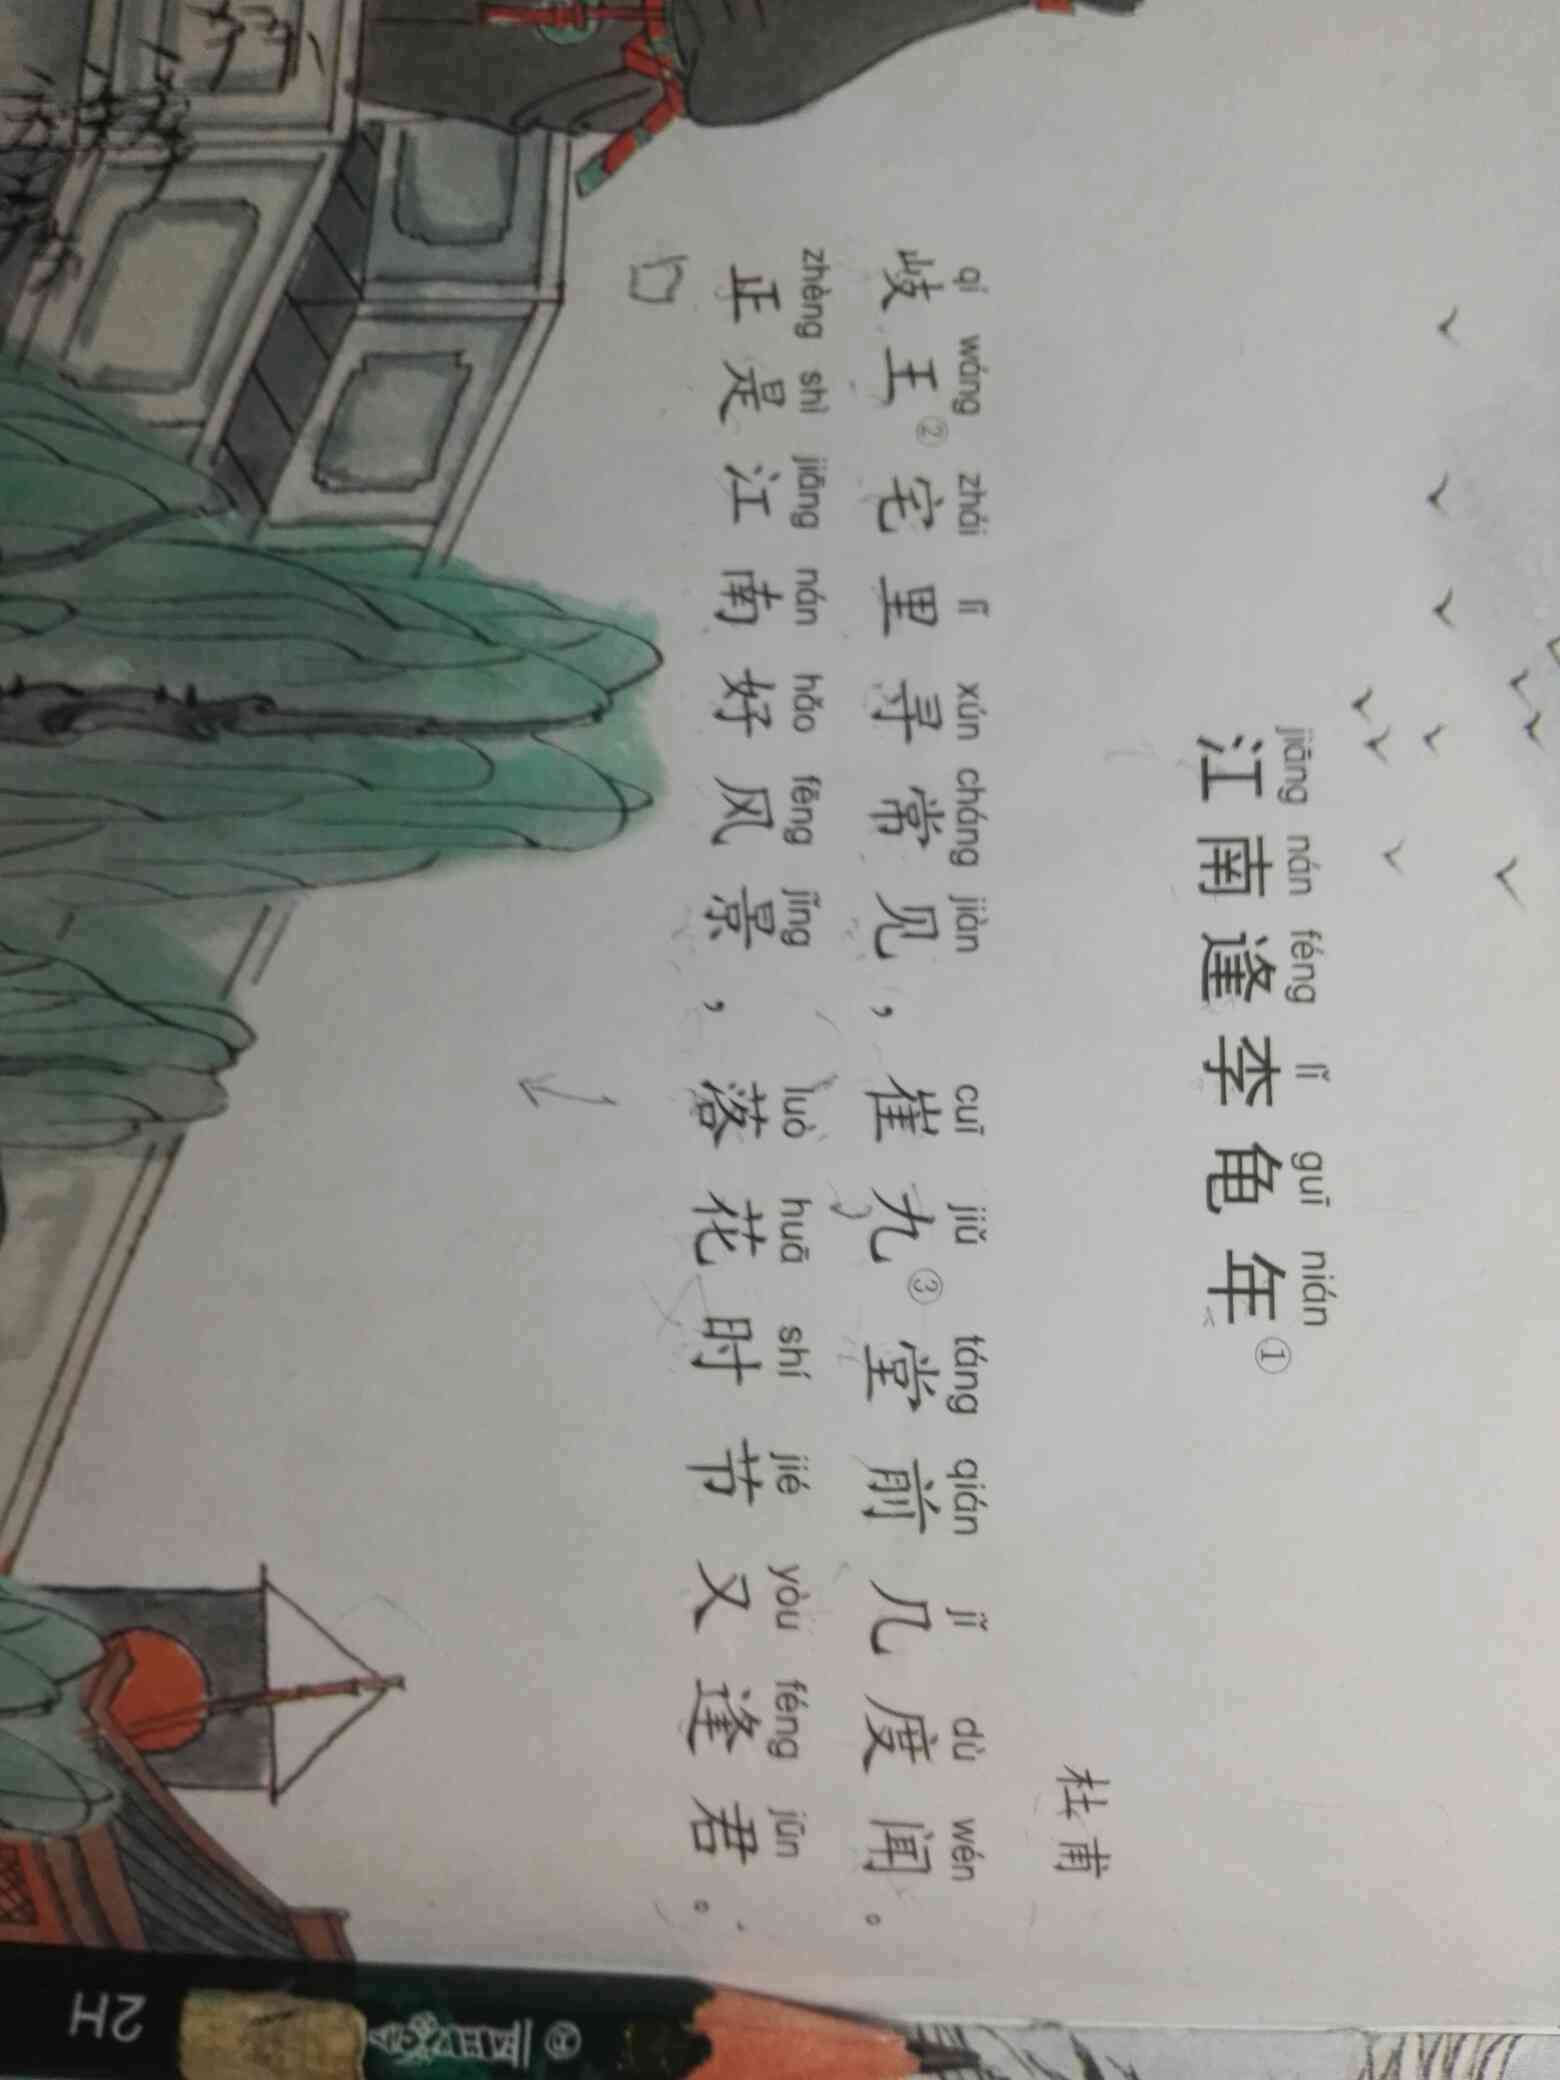 jiāng nán féng lǐ guī nián
江南逢李龟年①
杜甫
qí wáng zhái lǐ xún cháng jiàn cuī jiǔ táng qián jǐ dù wén
岐王②宅里寻常见，崔九③堂前几度闻。
zhèng shì jiāng nán hǎo fēng jǐng luò huā shí jié yòu féng jūn
正是江南好风景，落花时节又逢君。
2H